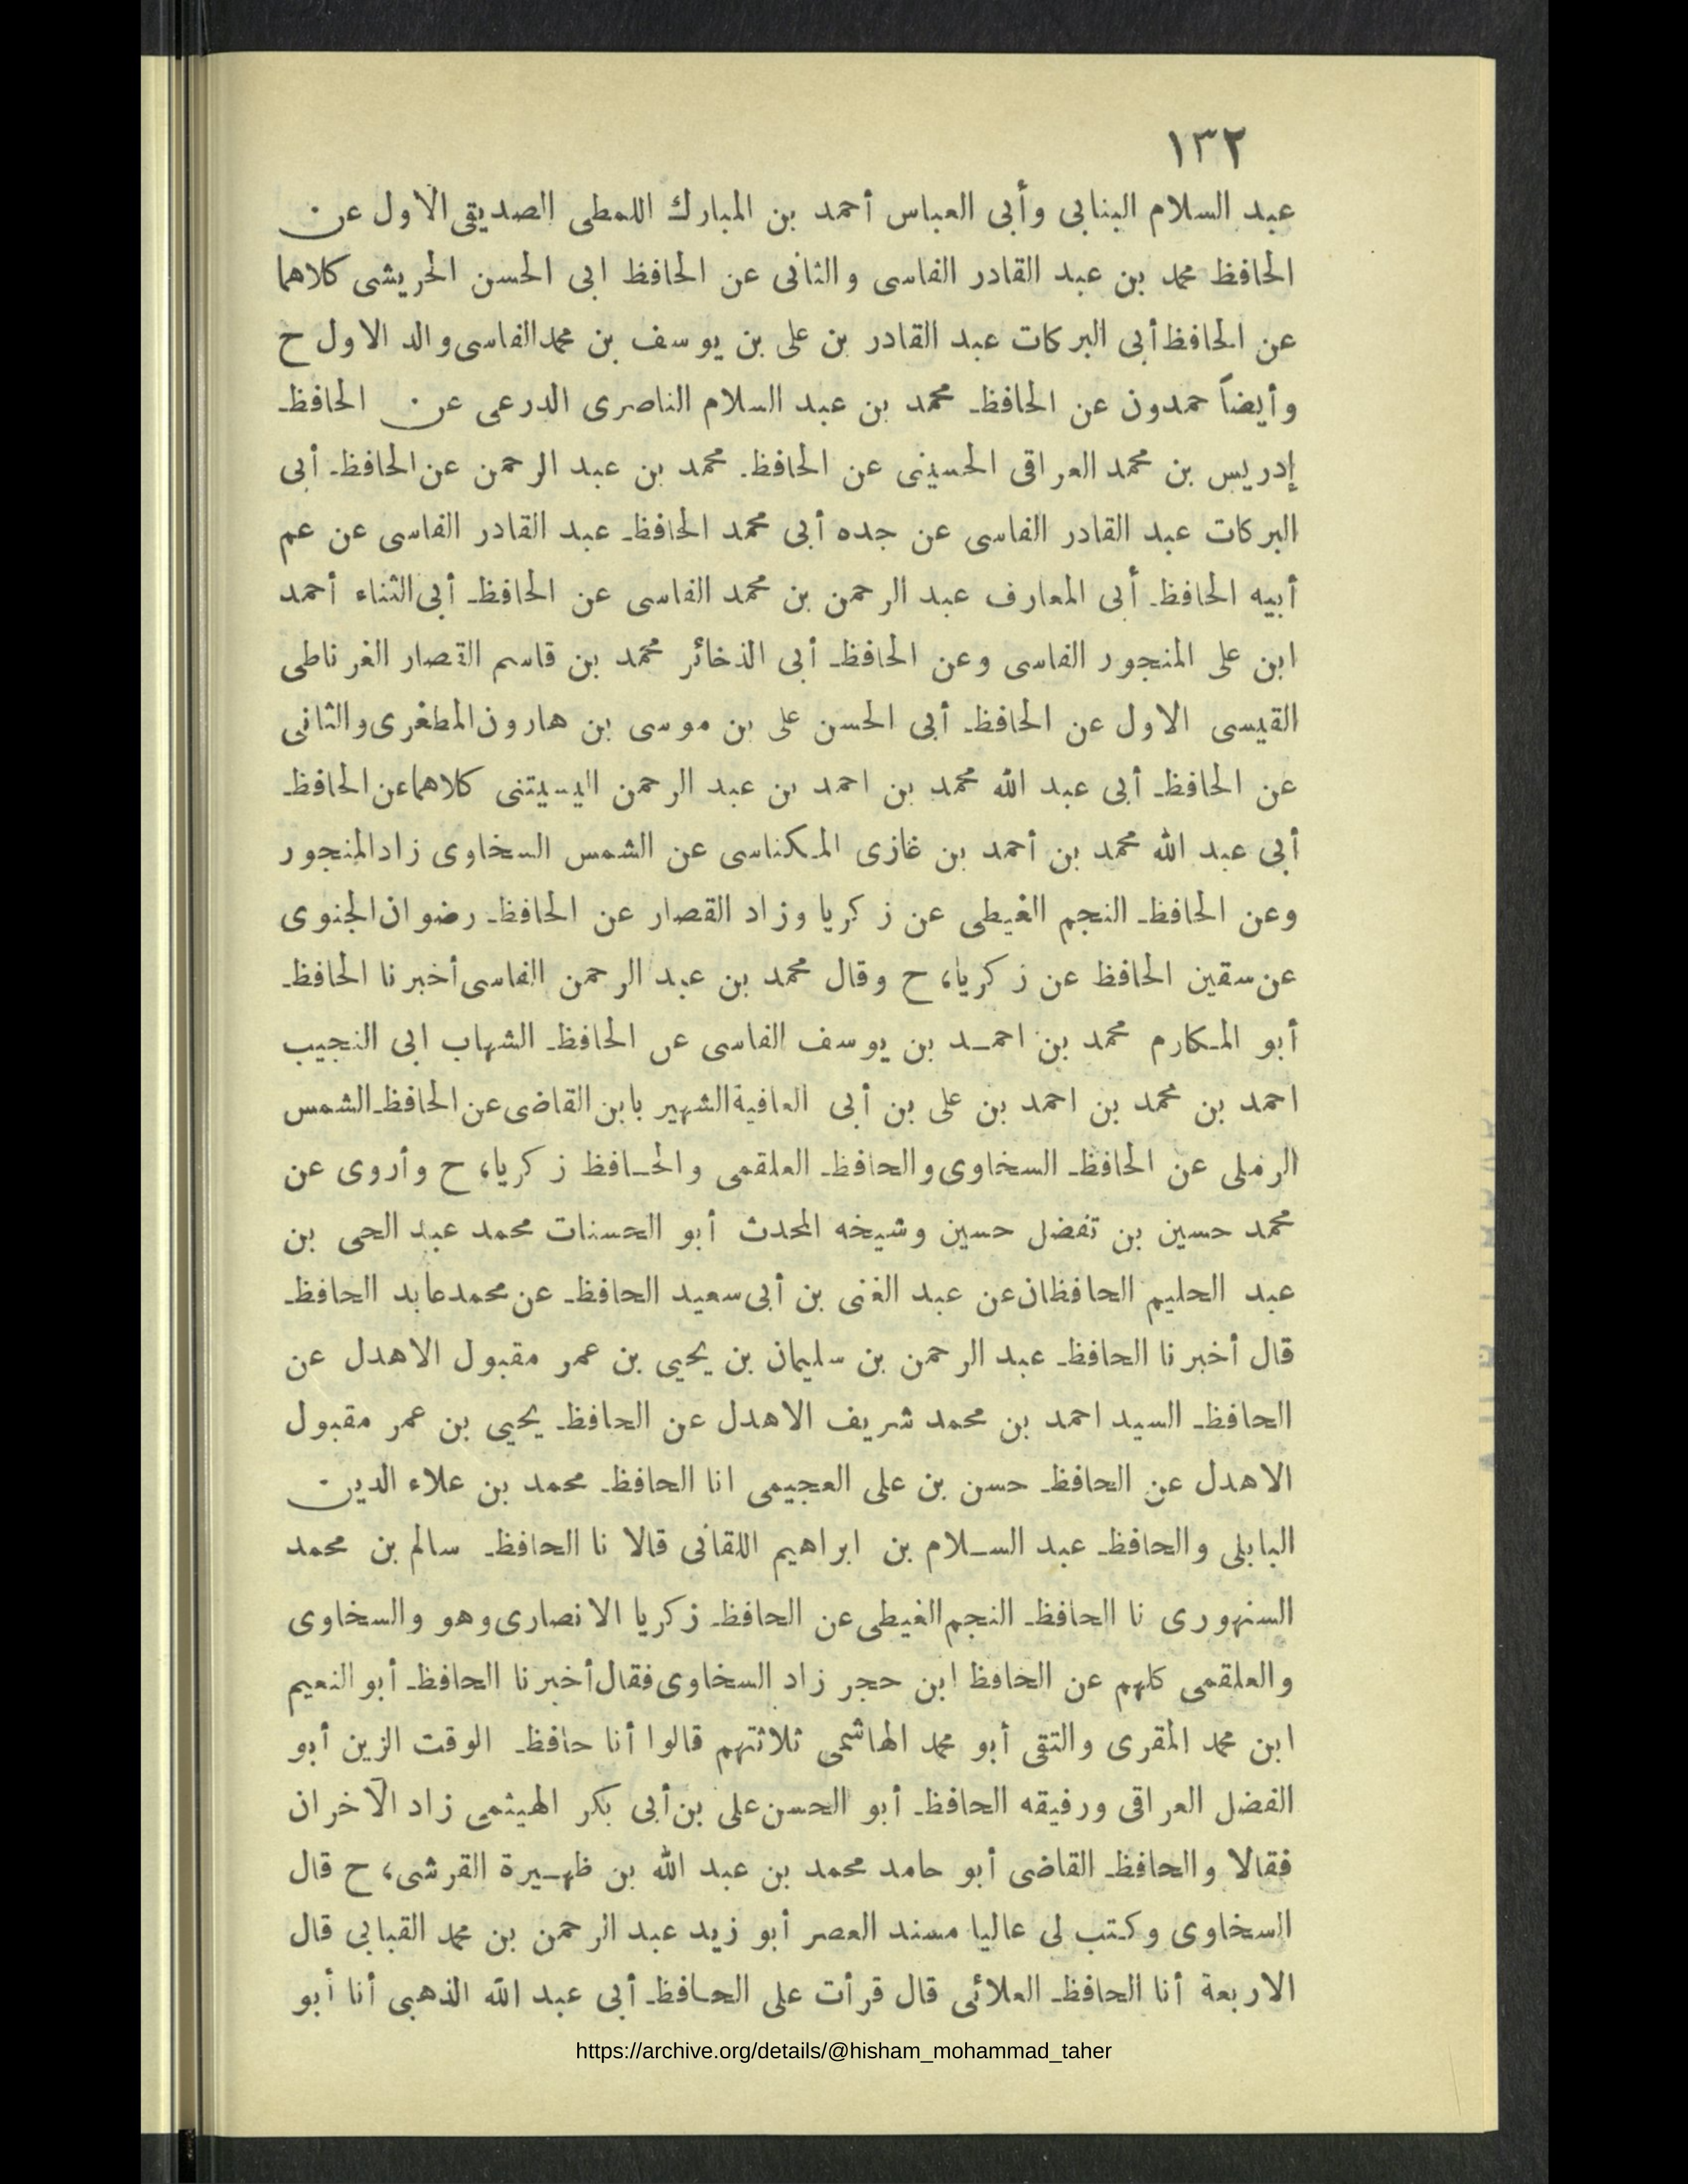 ١٣٢
عبد السلام البنابى وأبى العباس أحمد بن المبارك اللمطى الصديقى الاول عن
الحافظ محمد بن عبد القادر الفاسى والثانى عن الحافظ ابى الحسن الحريشى كلاهما
عن الحافظ أبى البركات عبد القادر بن على بن يوسف بن محمد الفاسى والد الاول ح
وأيضاً حمدون عن الحافظ محمد بن عبد السلام الناصرى الدرعى عن الحافظ
إدريس بن محمد العراقى الحسينى عن الحافظ محمد بن عبد الرحمن عن الحافظ أبى
البركات عبد القادر الفاسى عن جده أبى محمد الحافظ عبد القادر الفاسى عن عم
أبيه الحافظ أبى المعارف عبد الرحمن بن محمد الفاسى عن الحافظ أبى الثناء أحمد
ابن على المنجور الفاسى وعن الحافظ أبى الذخائر محمد بن قاسم القصار الغرناطى
القيسى الاول عن الحافظ أبى الحسن على بن موسى بن هارون المطغرى والثانى
عن الحافظ أبى عبد الله محمد بن احمد بن عبد الرحمن اليسيتنى كلاهما عن الحافظ
أبى عبد الله محمد بن أحمد بن غازى المكناسى عن الشمس السخاوى زاد المنجور
وعن الحافظ النجم الغيطى عن زكريا وزاد القصار عن الحافظ رضوان الجنوى
عن سقين الحافظ عن زكريا، ح وقال محمد بن عبد الرحمن الفاسى أخبرنا الحافظ
أبو المكارم محمد بن احمد بن يوسف الفاسى عن الحافظ الشهاب ابى النجيب
احمد بن محمد بن احمد بن على بن أبى العافية الشهير بابن القاضى عن الحافظ الشمس
الرملى عن الحافظ السخاوى والحافظ العلقمى والحافظ زكريا، ح وأروى عن
محمد حسين بن تفضل حسين وشيخه المحدث أبو الحسنات محمد عبد الحى بن
عبد الحليم الحافظان عن عبد الغنى بن أبى سعيد الحافظ عن محمد عابد الحافظ
قال أخبرنا الحافظ عبد الرحمن بن سليمان بن يحيى بن عمر مقبول الاهدل عن
الحافظ السيد احمد بن محمد شريف الاهدل عن الحافظ يحيى بن عمر مقبول
الاهدل عن الحافظ حسن بن على العجيمى انا الحافظ محمد بن علاء الدين
البابلى والحافظ عبد السلام بن ابراهيم اللقانى قالا نا الحافظ سالم بن محمد
السنهورى نا الحافظ النجم الغيطى عن الحافظ زكريا الانصارى وهو والسخاوى
والعلقمى كلهم عن الحافظ ابن حجر زاد السخاوى فقال أخبرنا الحافظ أبو النعيم
ابن محمد المقرى والتقى أبو محمد الهاشمى ثلاثتهم قالوا أنا حافظ الوقت الزين أبو
الفضل العراقى ورفيقه الحافظ أبو الحسن على بن أبى بكر الهيثمى زاد الآخران
فقالا والحافظ القاضى أبو حامد محمد بن عبد الله بن ظهيرة القرشى، ح قال
السخاوى وكتب لى عاليا مسند العصر أبو زيد عبد الرحمن بن محمد القبابى قال
الاربعة أنا الحافظ العلائى قال قرأت على الحافظ أبى عبد الله الذهبى أنا أبو
https://archive.org/details/@hisham_mohammad_taher